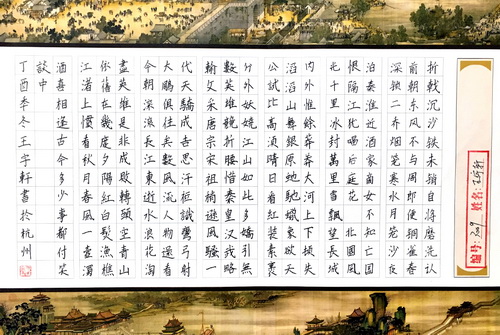 折戟沉沙铁未销自将磨洗认
前朝东风不与周郎便铜雀春
深锁二乔烟笼寒水月笼沙夜
泊秦淮近酒家商女不知亡国
恨隔江犹唱后庭花 北國風
光千里冰封萬里雪飘望长城
内外惟馀莽莽大河上下顿失
滔滔山舞银蛇原驰蜡象欲天
公試比高须晴日看红裝素裹
分外妖娆江山如此多嬌引無
數英雄競折腰惜秦皇汉武略
輸文采唐宗宋祖稍逊風騷一
代天驕成吉思汗祗識彎弓射
大鵰俱往矣數風流人物還看
今朝 滚滚长江東逝水浪花淘
盡英雄是非成敗轉頭空青山
依舊在几度夕陽紅白髮漁樵
江渚上慣看秋月春風一壺濁
酒喜相逢古今多少事都付笑
談中
丁酉季冬王宇軒書於杭州
编号: 2009 姓名: 王宇轩